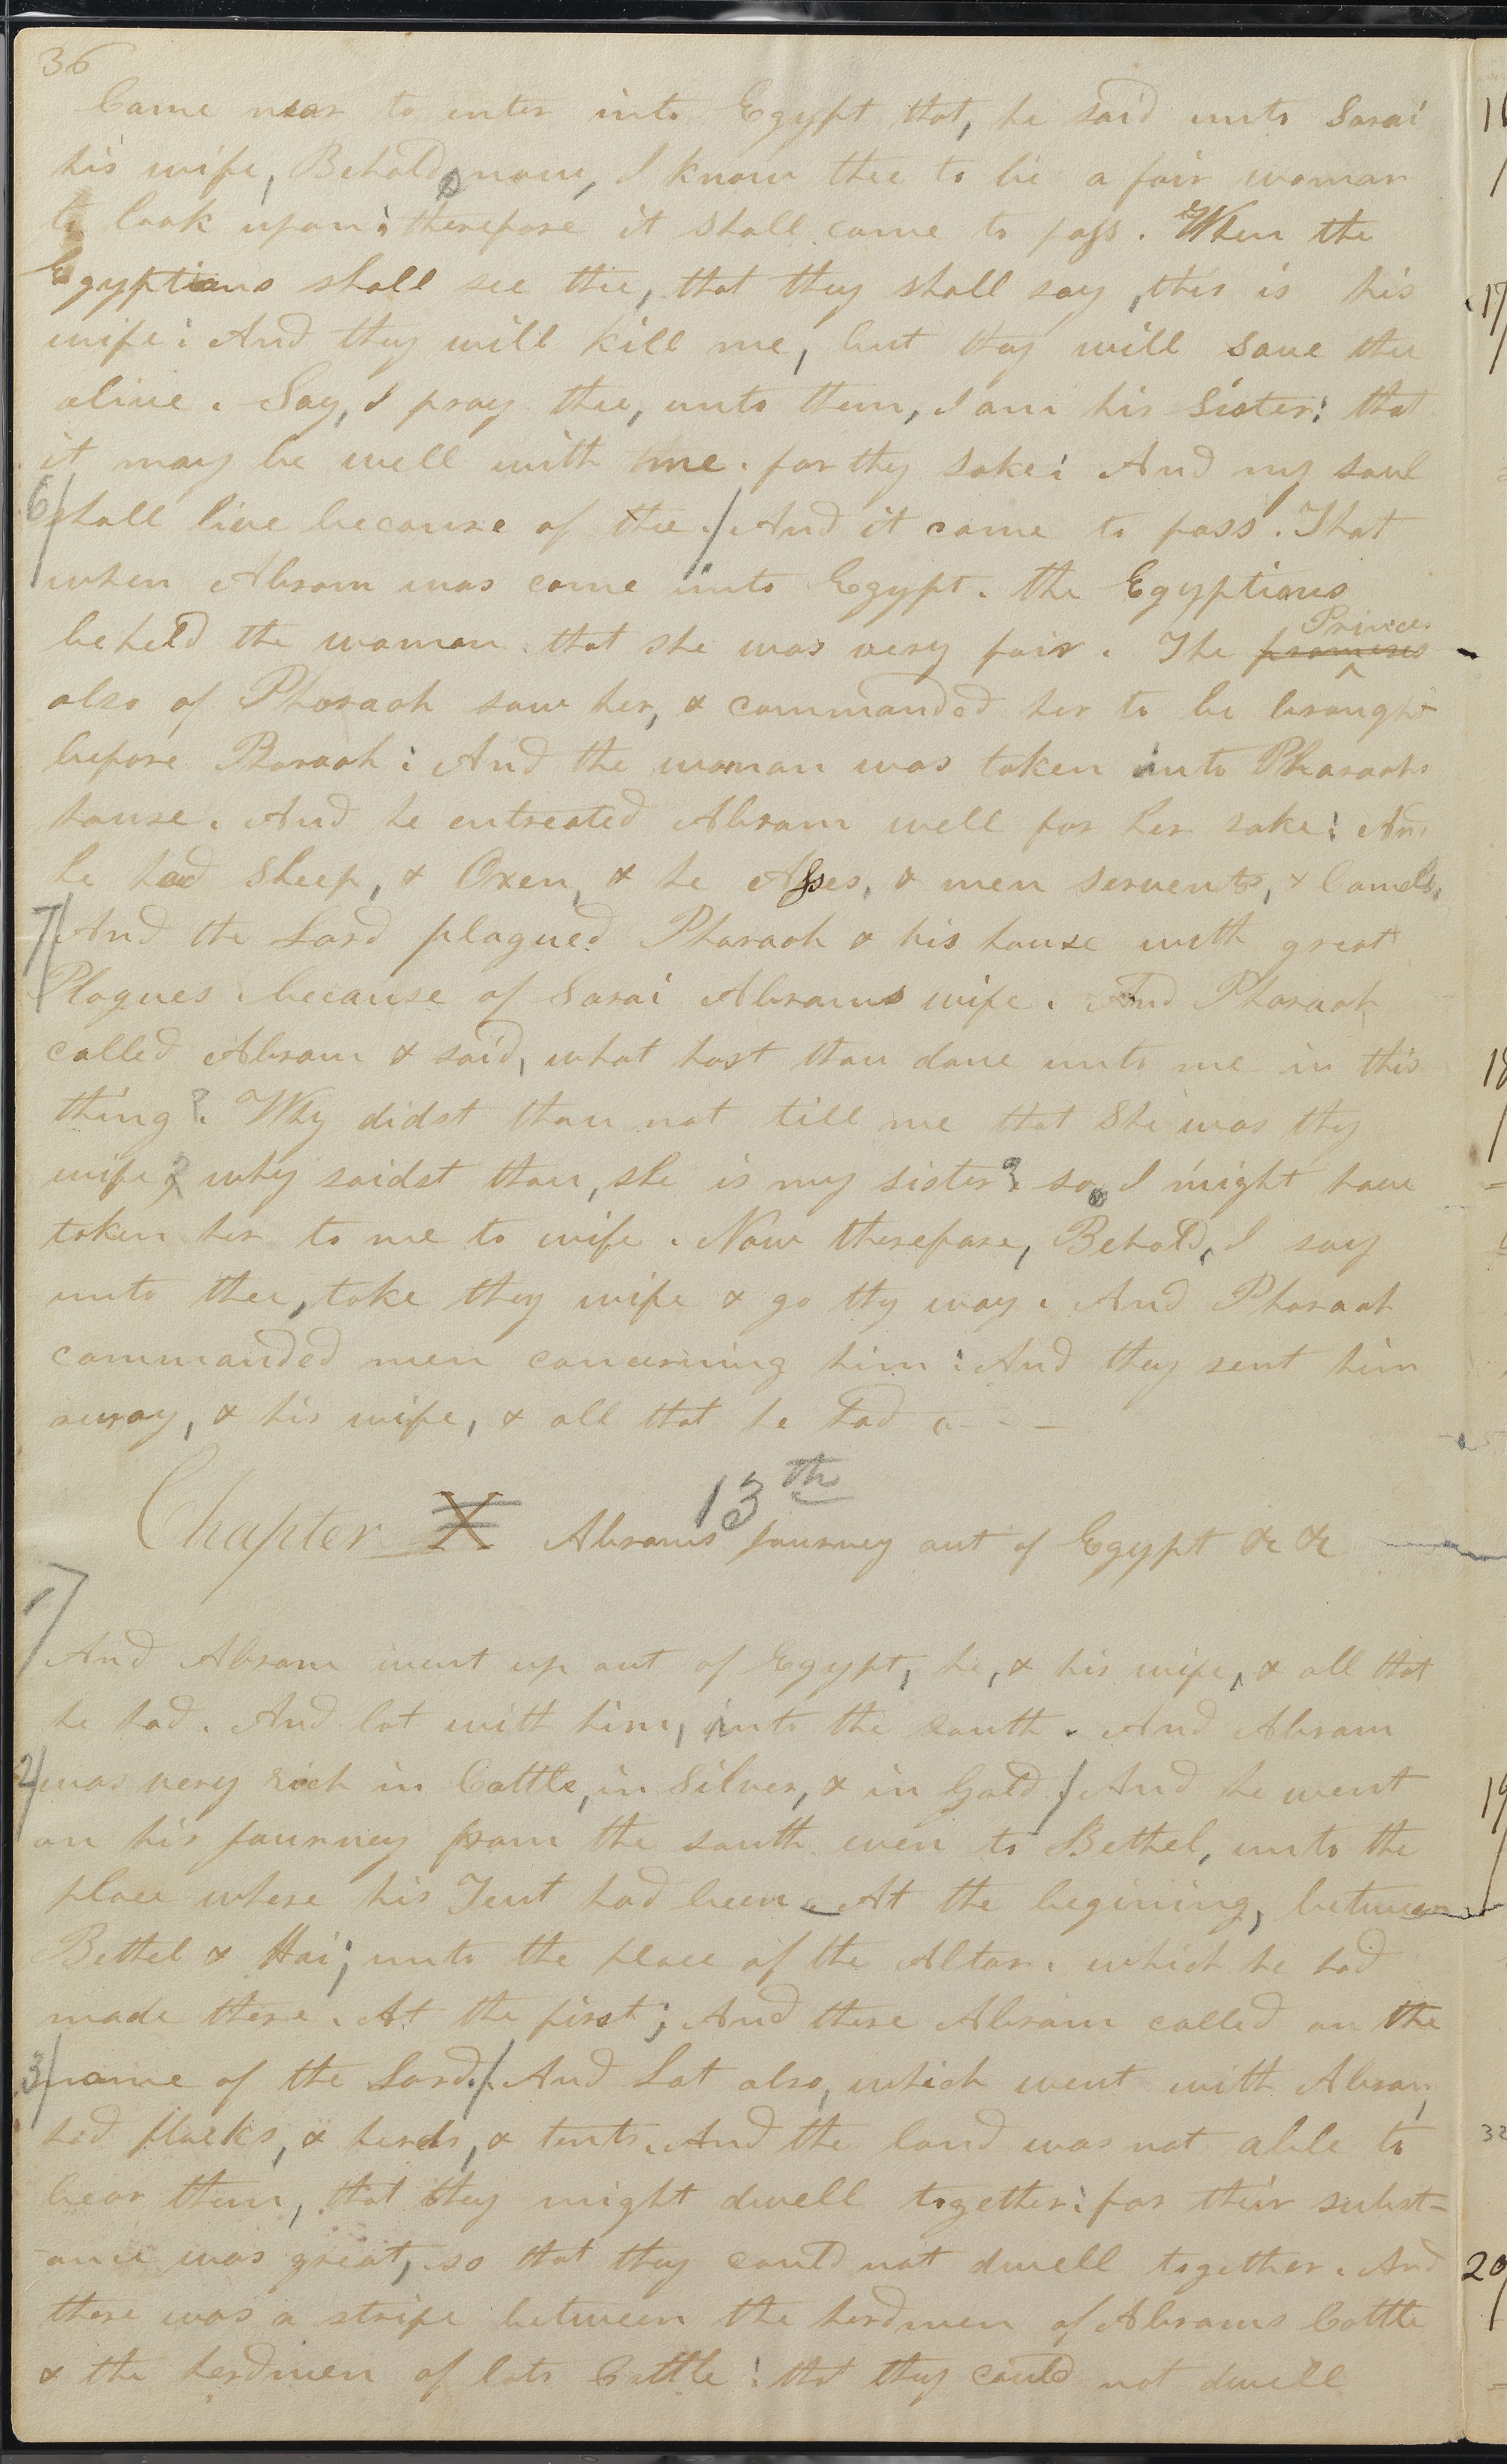 36
Came near to enter into Egypt that, he said unto Sarai
his wife, Behold, now, I know thee to be a fair woman
to look upon: therefore it shall come to pass. When the
Egyptians shall see thee, that they shall say, this is his
wife: And they will kill me, but they will save thee
alive. Say, I pray thee, unto them, I am his Sister: that
it may be well with me. for thy sake: And my soul
6/ shall live because of thee./ And it came to pass. That
when Abram was come into Egypt. the Egyptians
beheld the woman that she was very fair. The promises Princes
also of Pharaoh saw her, & commanded her to be brought
before Pharaoh: And the woman was taken into Pharaohs
house. And he entreated Abram well for her sake: And
he had Sheep, & Oxen, & he Asses, & men servents, & Camels,
7/ And the Lord plagued Pharaoh & his house with great
Plagues. because of Sarai Abrams wife. And Pharaoh
called Abram & said, what hast thou done unto me in this
thing?. Why didst thou not till me that She was thy
wife? why saidst thou, she is my sister? so, I might have
taken her to me to wife. Now therefore, Behold, I say
unto thee, take thy wife & go thy way. And Pharaoh
commanded men concerning him: And they sent him
away, & his wife, & all that he had - - -
Chapter X 13th Abrams Journey out of Egypt &c &c
1/
And Abram went up out of Egypt, he, & his wife, & all that
he had. And lot with him, into the south. And Abram
2/ was very rich in Cattle, in Silver, & in Gold./ And he went
on his Journey from the south even to Bethel, unto the
place where his Tent had been. At the begining, between
Bethel & Hai; unto the place of the Altar. which he had
made there. At the first; And there Abram called on the
3/ name of the Lord./ And Lot also, which went with Abram,
had flocks, & herds, & tents. And the land was not able to
bear them, that they might dwell together: for their subst=
ance was great, so that they could not dwell together. And
there was a strife between the herdmen of Abrams Cattle
& the herdmen of lots Cattle: that they could not dwell
17
18
19
32
20